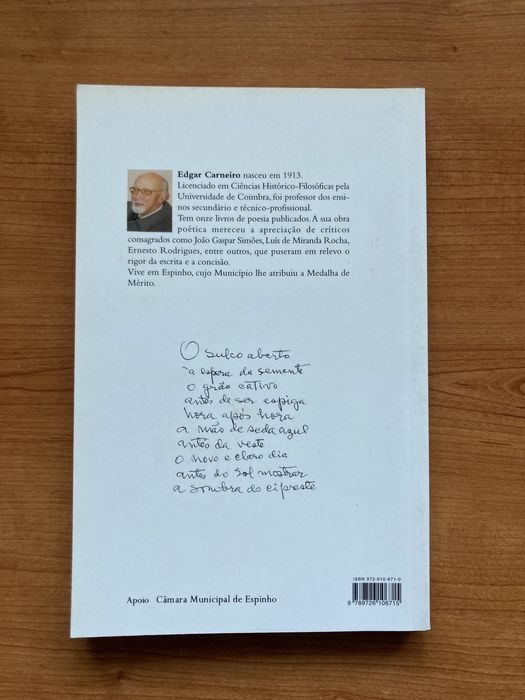 Edgar Carneiro nasceu em 1913.
Licenciado em Ciências Histórico-Filosóficas pela
Universidade de Coimbra, foi professor dos ensi-
nos secundário e técnico-profissional.
Tem onze livros de poesia publicados. A sua obra
poética mereceu a apreciação de críticos
consagrados como João Gaspar Simões, Luís de Miranda Rocha,
Ernesto Rodrigues, entre outros, que puseram em relevo o
rigor da escrita e a concisão.
Vive em Espinho, cujo Município lhe atribuiu a Medalha de
Mérito.
O sulco aberto
à espera da semente
o grão cativo
antes de ser espiga
hora após hora
a mão de seda azul
antes da veste
o novo e claro dia
antes do sol mostrar
a sombra do cipreste
ISBN 972-610-671-0
9 789726 106715
Apoio Câmara Municipal de Espinho